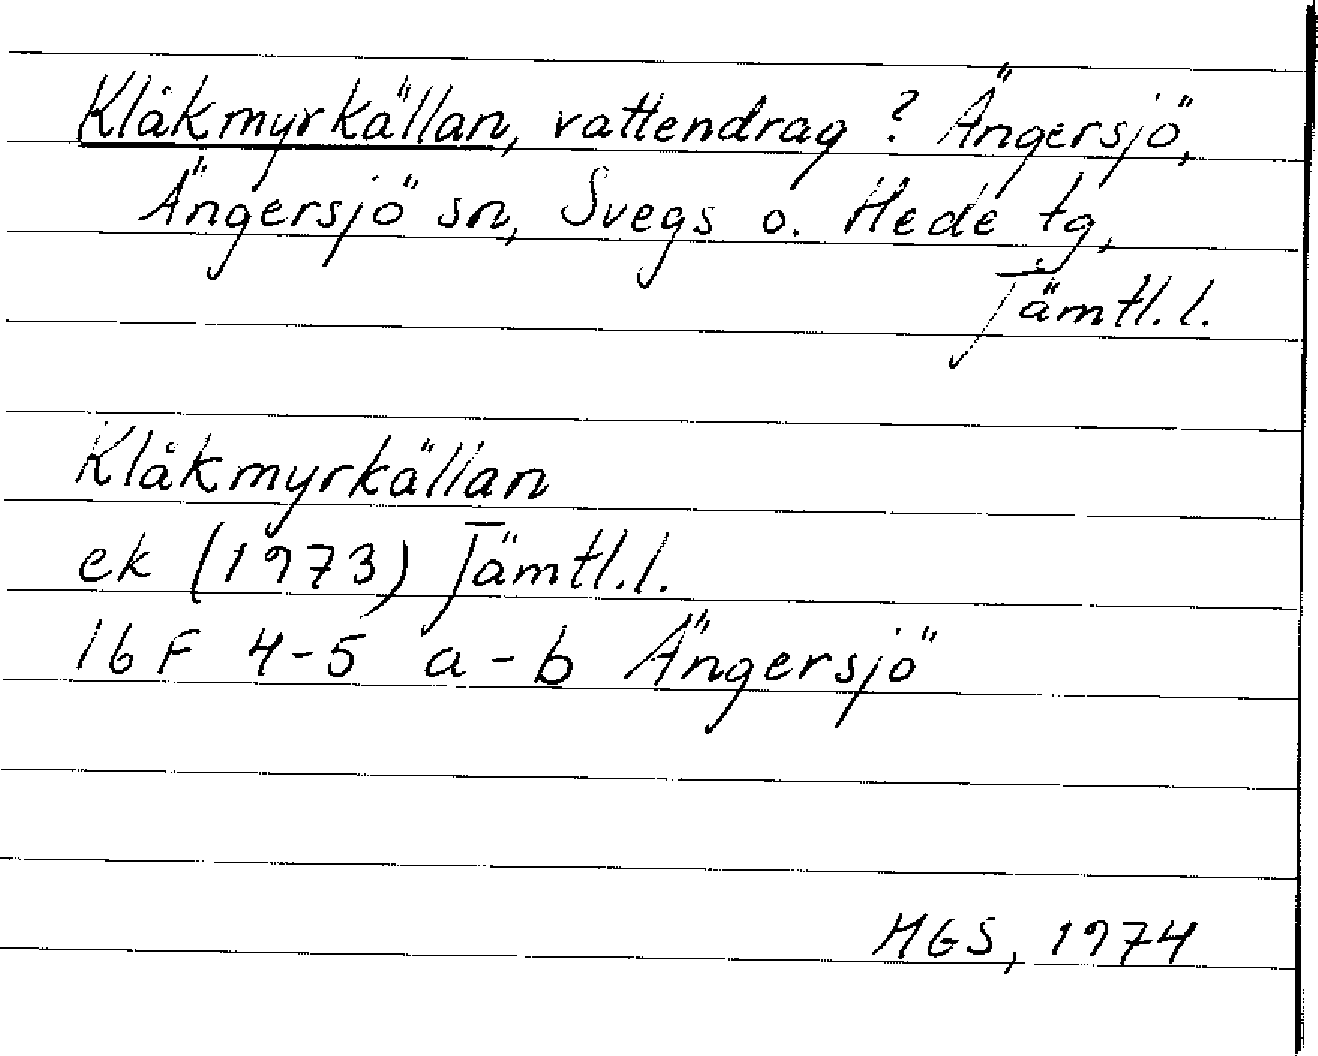 Klåkmyrkällan, vattendrag ? Ängersjö,
Ängersjö sn, Svegs o. Hede tg,
Jämtl.l.
Klåkmyrkällan
ek (1973) Jämtl.l.
16 F 4-5 a-b Ängersjö
MGS, 1974